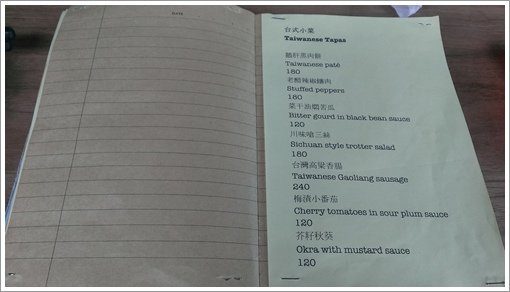 DATE
台式小菜
Taiwanese Tapas
Taiwanese paté
180
老醋辣椒鑲肉
Stuffed peppers
180
菜干油燜苦瓜
Bitter gourd in black bean sauce
120
川味嗆三絲
Sichuan style trotter salad
180
台灣高梁香腸
Taiwanese Gaoliang sausage
240
梅漬小番茄
Cherry tomatoes in sour plum sauce
120
芥籽秋葵
Okra with mustard sauce
120